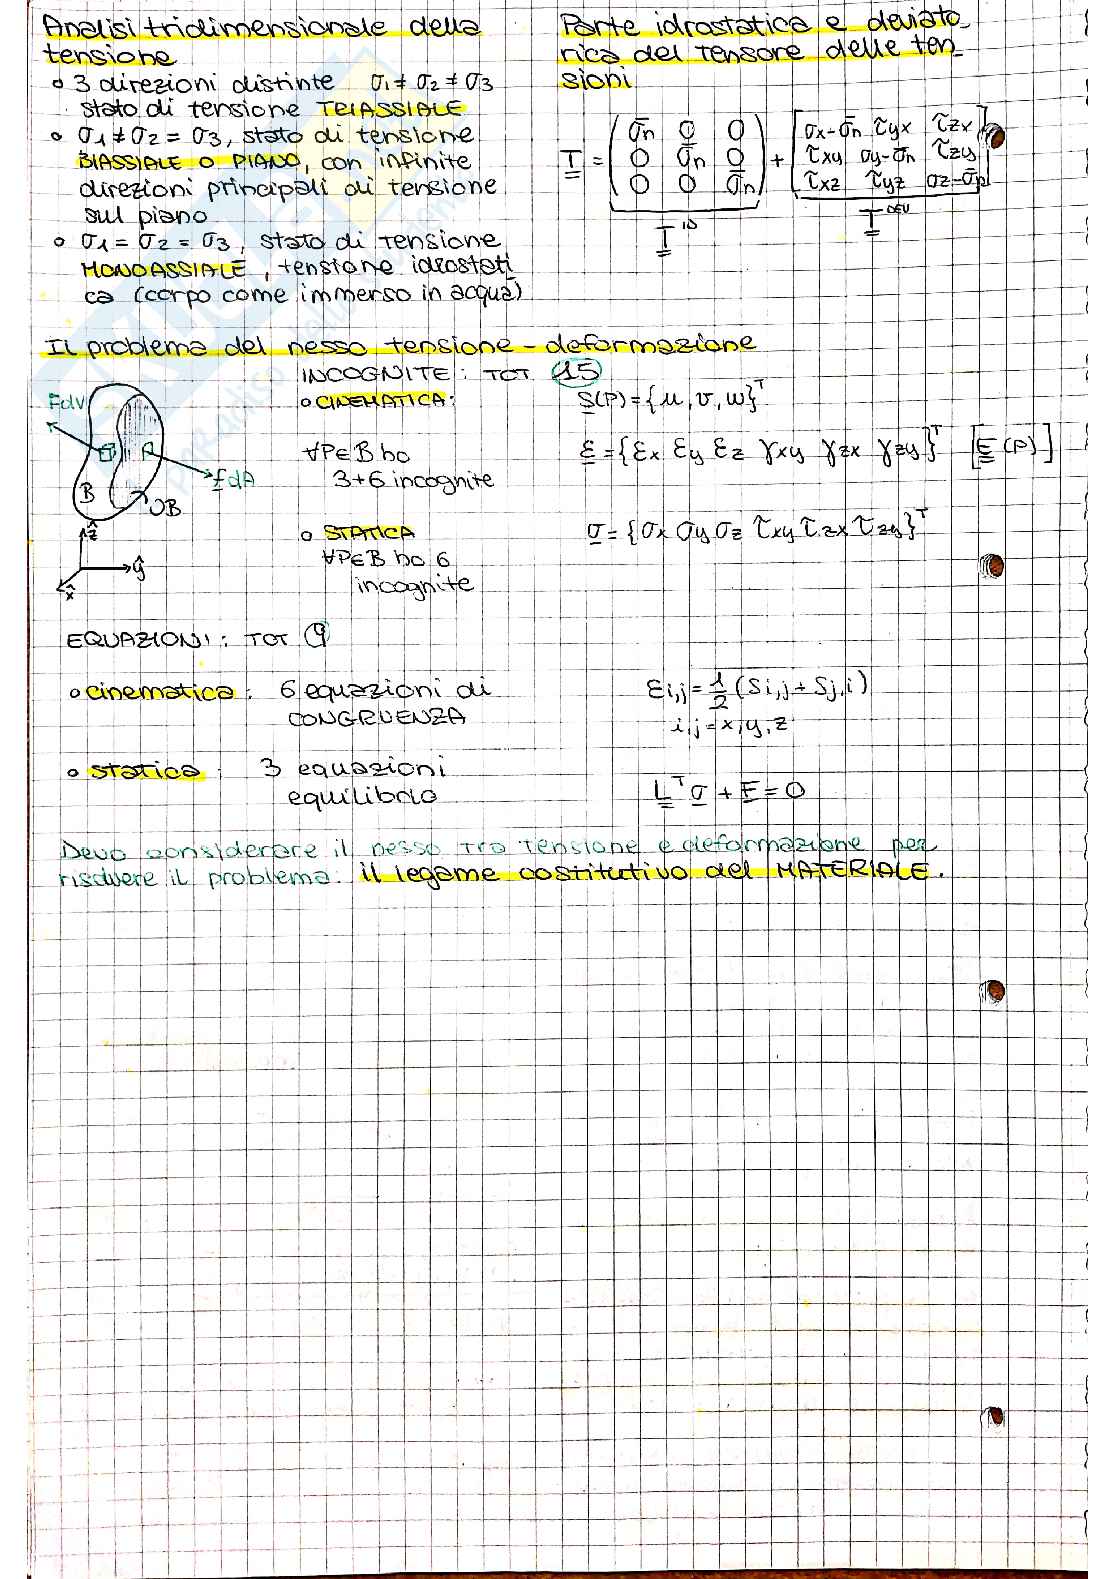 Analisi tridimensionale della
tensione
° 3 direzioni distinte σ1 ≠ σ2 ≠ σ3
stato di tensione TRIASSIALE
° σ1 ≠ σ2 = σ3, stato di tensione
BIASSIALE O PIANO, con infinite
direzioni principali di tensione
sul piano
° σ1 = σ2 = σ3, stato di tensione
MONOASSIALE, tensione idrostati
ca (corpo come immerso in acqua)
Parte idrostatica e deviato
rica del tensore delle ten_
sioni
T = (σn 0 0; 0 σn 0; 0 0 σn) + [σx-σn τyx τzx; τxy σy-σn τzy; τxz τyz σz-σn]
T^ID T^DEV
Il problema del nesso tensione - deformazione
INCOGNITE: TOT 15
° CINEMATICA: S(P) = {u, v, w}^T
∀P∈B ho ε = {εx εy εz γxy γzx γzy}^T [E(P)]
3+6 incognite
° STATICA σ = {σx σy σz τxy τzx τzy}^T
∀P∈B ho 6
incognite
Fdv
fdA
B
∂B
ẑ
ŷ
x̂
EQUAZIONI: TOT 9
° cinematica: 6 equazioni di εi,j = 1/2 (Si,j + Sj,i)
CONGRUENZA i,j = x, y, z
° statica: 3 equazioni
equilibrio L^T σ + F = 0
Devo considerare il nesso tra tensione e deformazione per
risolvere il problema: il legame costitutivo del MATERIALE.